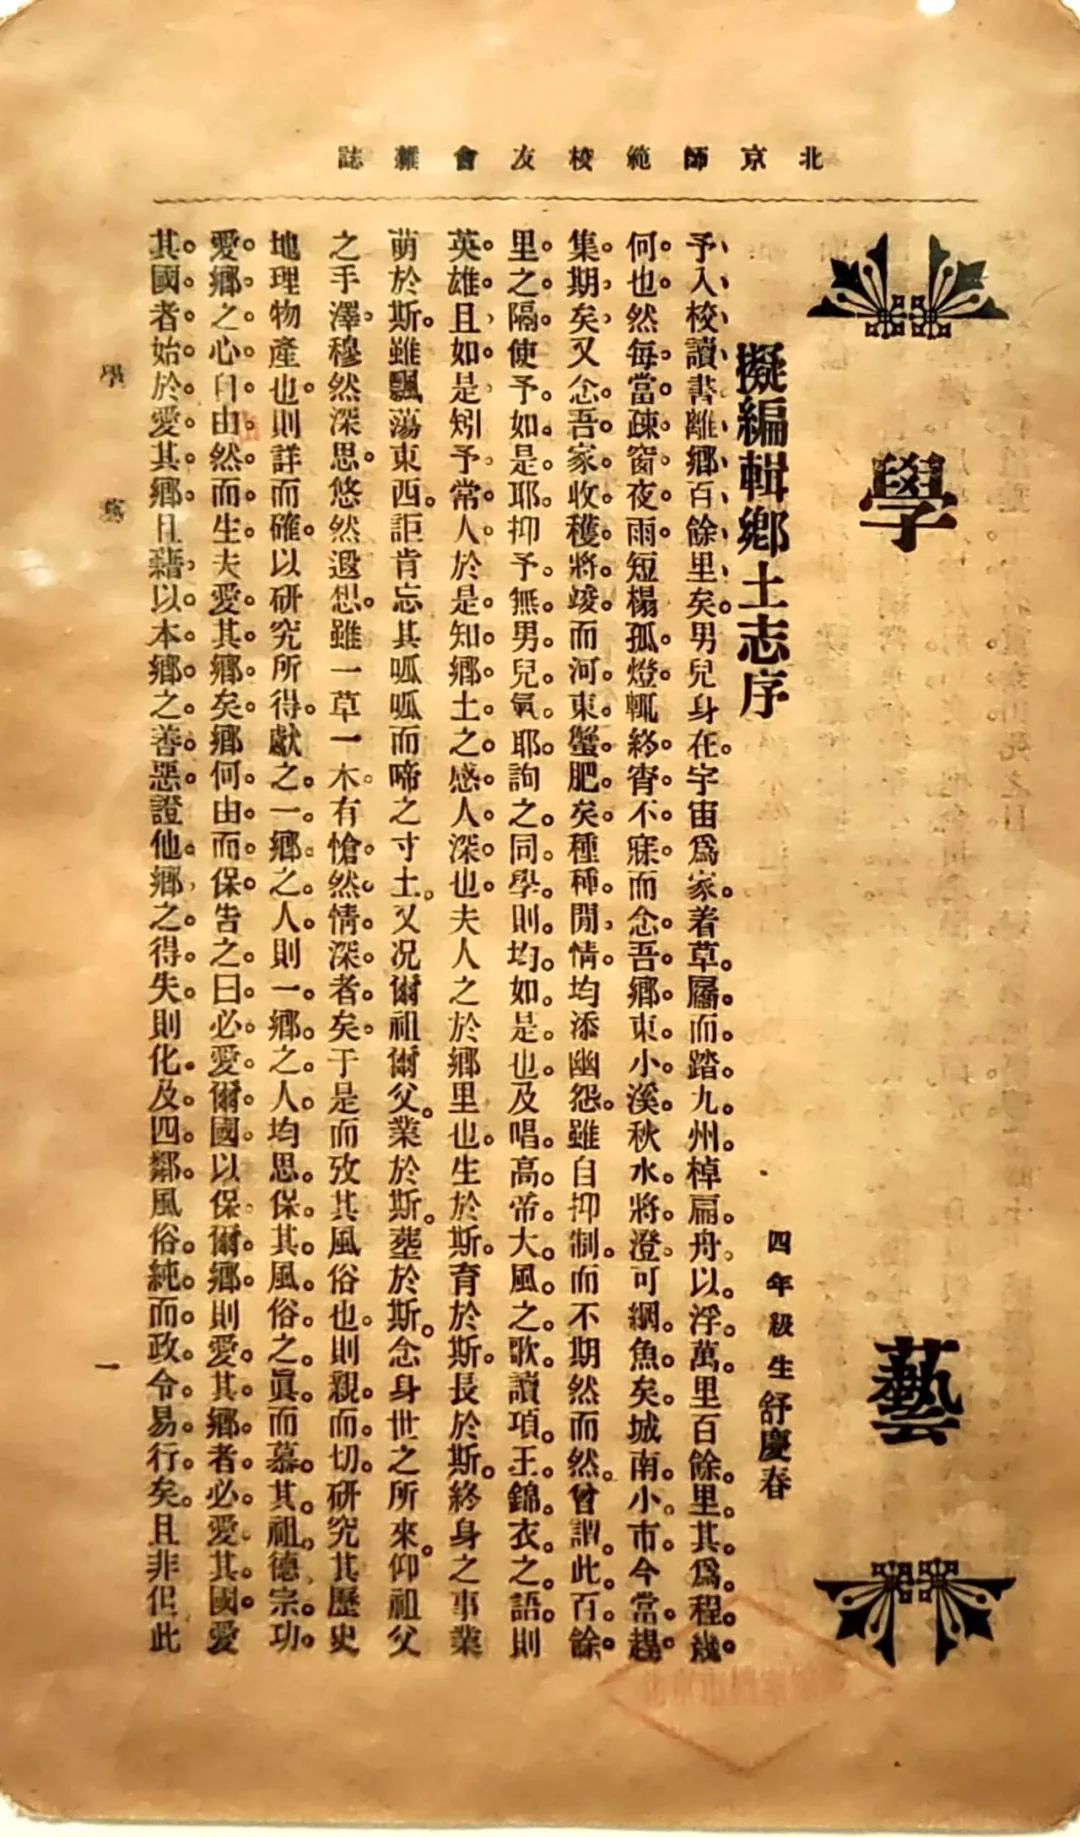 北京師範校友會雜誌
學藝
擬編輯鄉土志序
四年級生舒慶春
予入校讀書離鄉百餘里矣男兒身在宇宙爲家着草屩而踏九州棹扁舟以浮萬里百餘里其爲程幾
何也然每當疎窗夜雨短榻孤燈輒終宵不寐而念吾鄉東小溪秋水將澄可網魚矣城南小市今當趕
集期矣又念吾家收穫將竣而河東蟹肥矣種種閒情均添幽怨雖自抑制而不期然而然曾謂此百餘
里之隔使予如是耶抑予無男兒氣耶詢之同學則均如是也及唱高帝大風之歌讀項王錦衣之語則
英雄且如是矧予常人於是知鄉土之感人深也夫人之於鄉里也生於斯育於斯長於斯終身之事業
萌於斯雖飄蕩東西詎肯忘其呱呱而啼之寸土又况爾祖爾父業於斯葬於斯念身世之所來仰祖父
之手澤穆然深思悠然遐想雖一草一木有愴然情深者矣于是而攷其風俗也則親而切研究其歷史
地理物產也則詳而確以研究所得獻之一鄉之人則一鄉之人均思保其風俗之眞而慕其祖德宗功
愛鄉之心自由然而生夫愛其鄉矣鄉何由而保告之曰必愛爾國以保爾鄉則愛其鄉者必愛其國愛
其國者始於愛其鄉且藉以本鄉之善惡證他鄉之得失則化及四鄰風俗純而政令易行矣且非但此
學藝
一